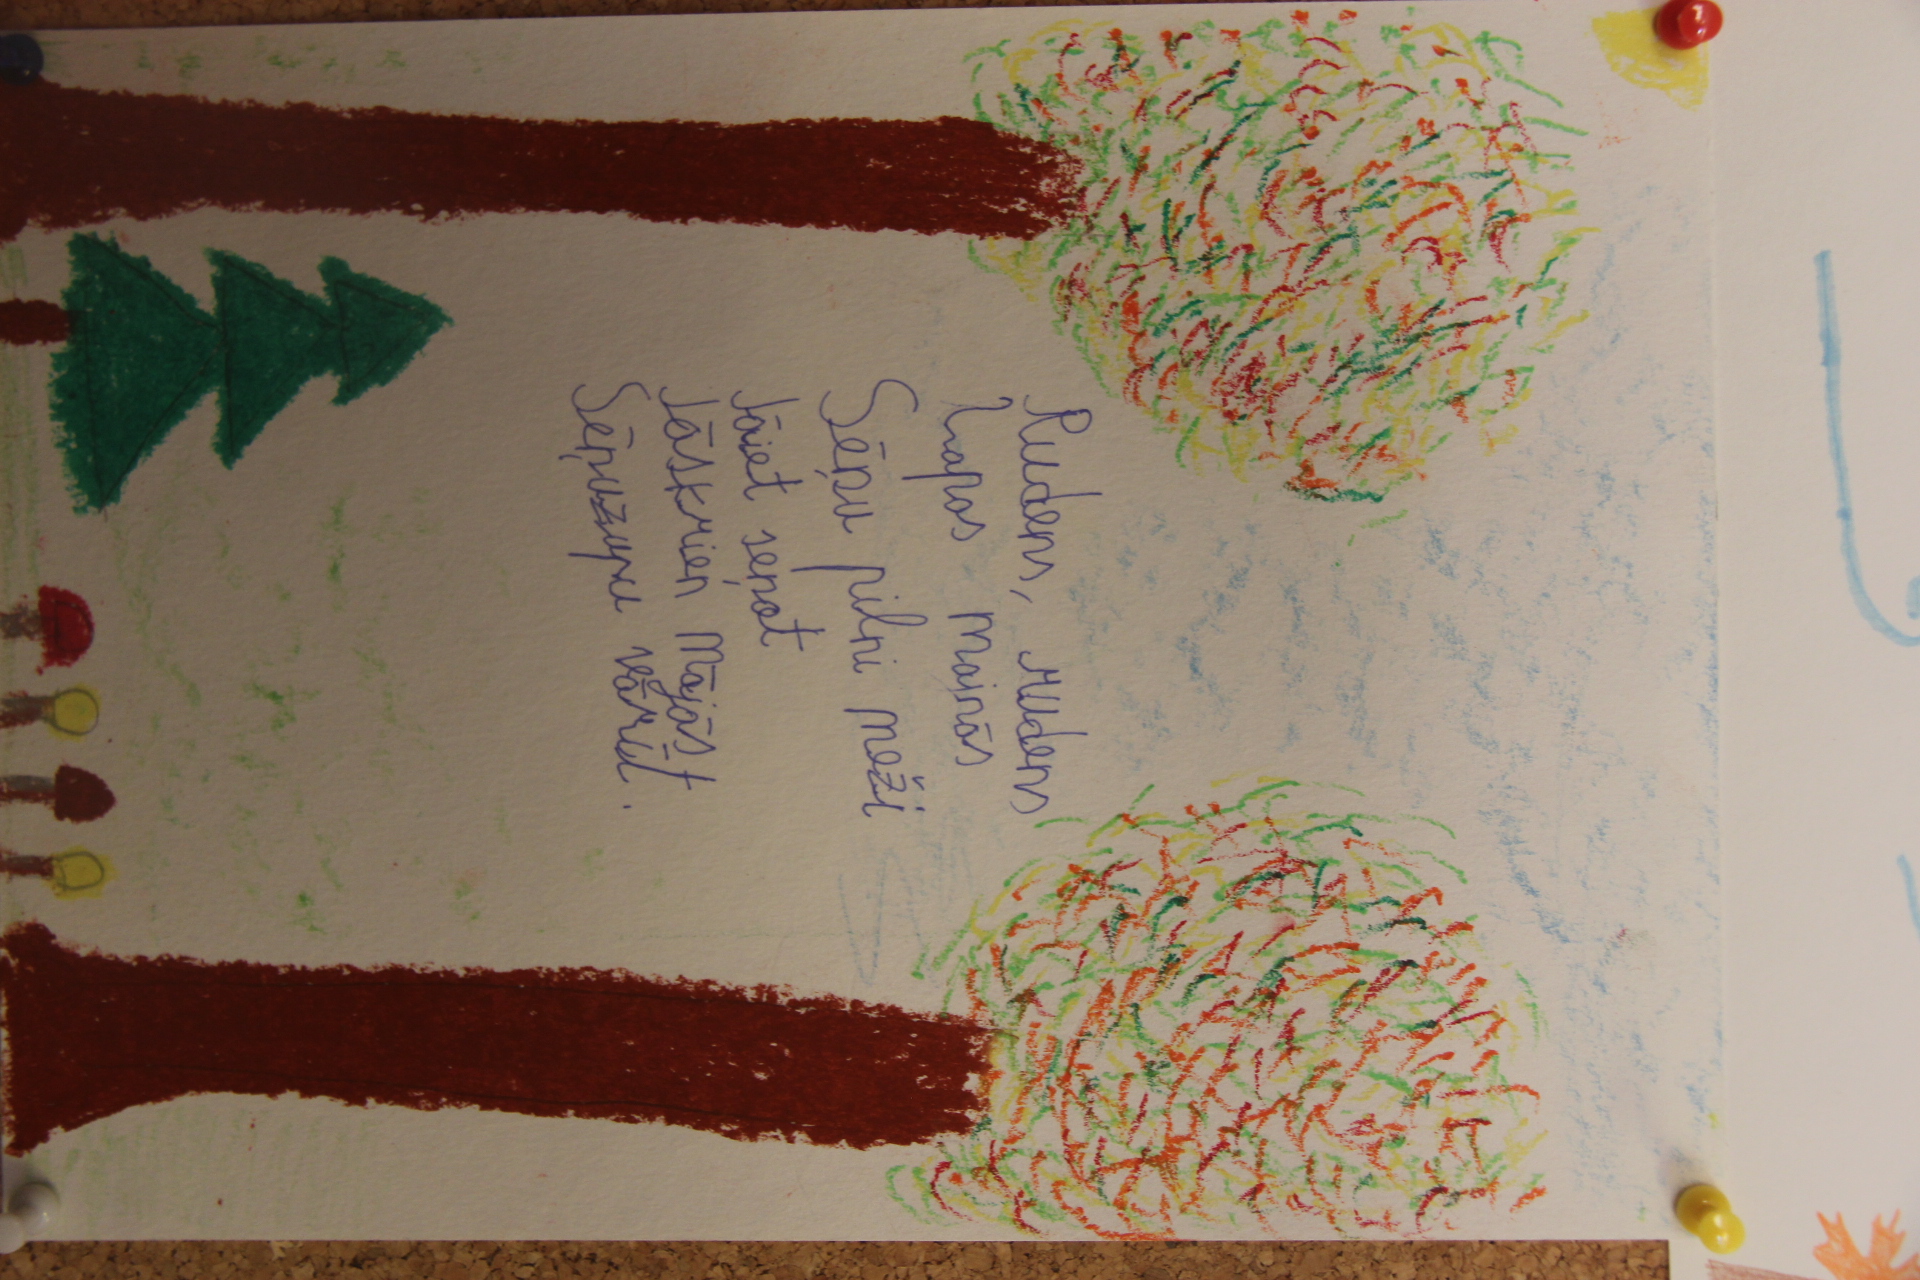 Rudens, rudens
Lapas mainās
Sēņu pilni meži
Jāiet seņot
Jāskrien mājās
Sēņuzupu vārīt.